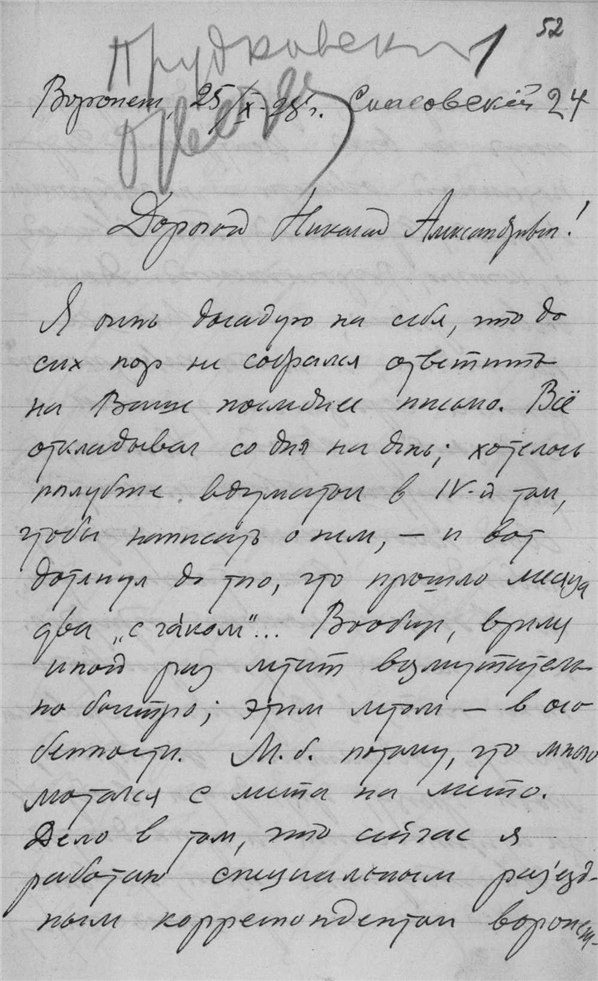 52
Прудковский
Воронеж, 25/X-28 г. Спасовский 24
Дорогой Николай Александрович!
Я очень досадую на себя, что до
сих пор не собрался ответить
на Ваше последнее письмо. Всё
откладывал со дня на день; хотелось
поглубже вдуматься в IV-й том,
чтобы написать о нем, — и вот
дотянул до того, что прошло месяца
два „с га́ком"... Вообще, время
иной раз летит возмутитель-
но быстро; этим летом — в осо
бенности. М.б. потому, что много
мотался с места на место.
Дело в том, что сейчас я
работаю специальным разъезд-
ным корреспондентом воронеж-